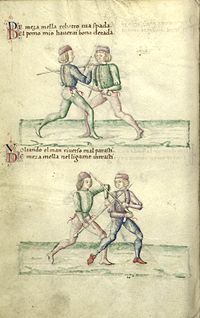 De meza mella roverso ma spada
Del pomo mio haverai bona derada
Voltando el man roverso mal parasti
De meza mella nel ligame intrasti